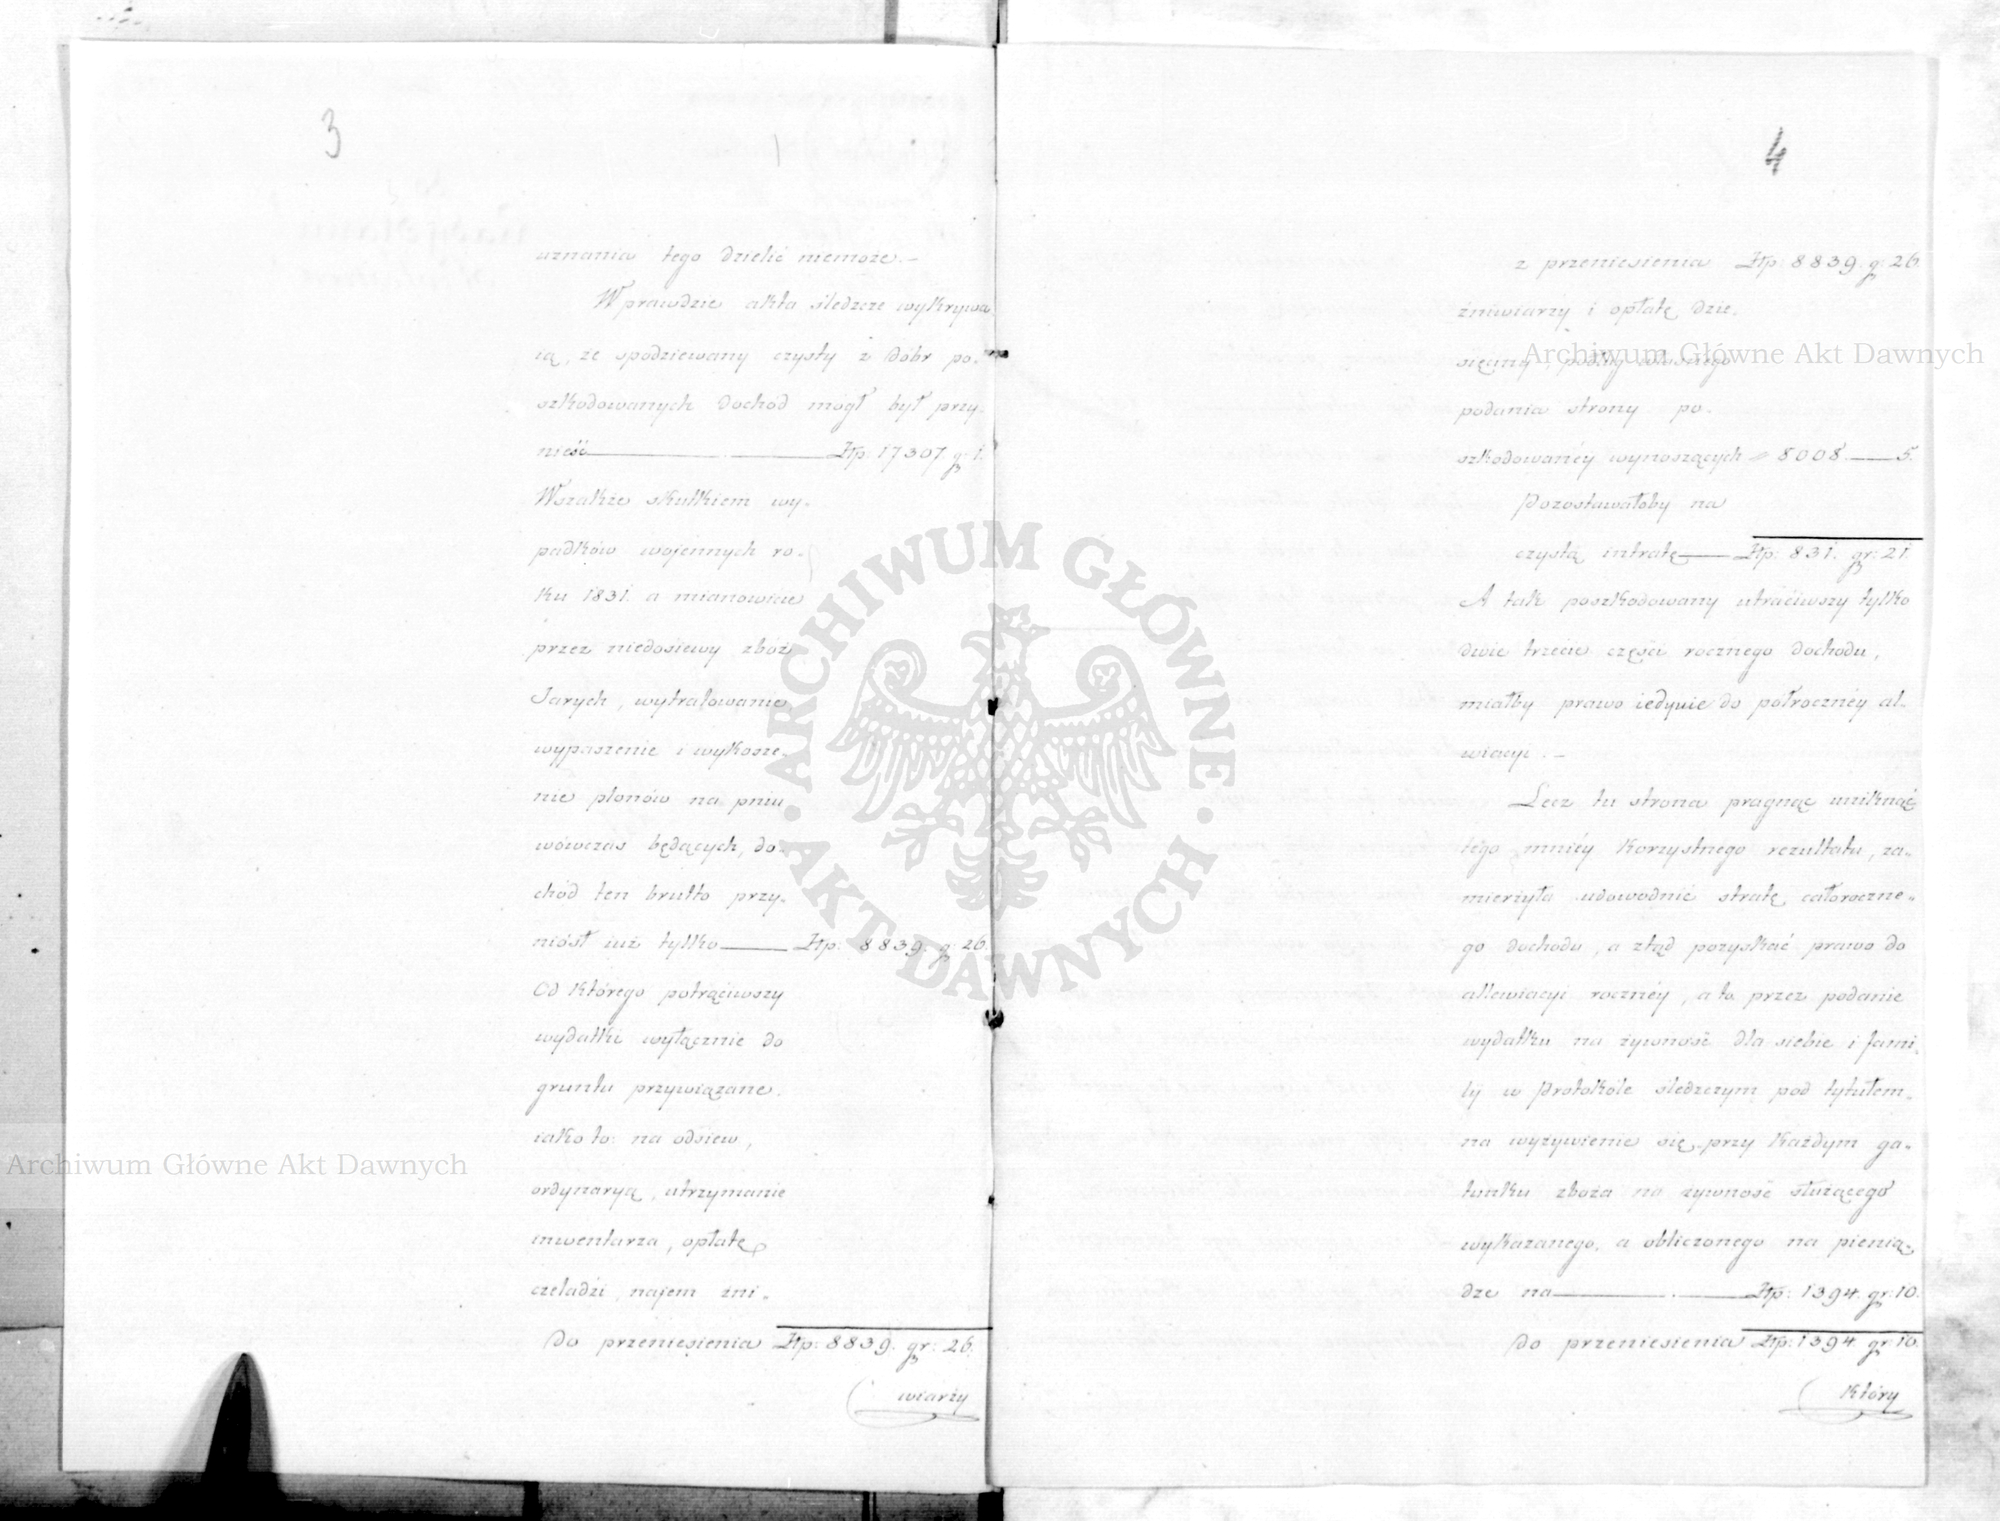 3
uznania tego dzielić niemoże.—
Wprawdzie akta śledcze wykrywa
ią, że spodziewany czysty z dóbr po-
szkodowanych dochód mógł był przy-
nieść Złp. 17307 g. 1.
Wszakże skutkiem wy-
padków wojennych ro-
ku 1831. a mianowicie
przez niedosiewy zbóż
Jarych, wytratowanie
wypaszenie i wykosze-
nie plonów na pniu
wówczas będących, do-
chód ten brutto przy-
niósł iuż tylko Złp. 8839. g. 26.
Od którego potrąciwszy
wydatki wyłącznie do
gruntu przywiązane.
iako to: na odsiew,
ordynaryą, utrzymanie
inwentarza, opłatę
czeladzi, najem żni-
Do przeniesienia Złp: 8839. gr: 26.
wiarzy
4
z przeniesienia Złp: 8839. g. 26.
żniwiarzy i opłatę dzie-
sięciny, podług własnego
podania strony po-
szkodowanéy wynoszących „ 8008.—5.
Pozostawałoby na
czystą intratę Złp: 831. gr: 21.
A tak poszkodowany utraciwszy tylko
dwie trzecie części rocznego dochodu,
miałby prawo iedynie do półrocznéy al-
wiacyi.—
Lecz tu strona pragnąc uniknąć
tego mniéy korzystnego rezultatu, za-
mierzyła udowodnić stratę całoroczne-
go dochodu, a ztąd pozyskać prawo do
allewiacyi rocznéy, a to przez podanie
wydatku na żywność dla siebie i fami-
lij w Protokóle śledczym pod tytułem-
na wyżywienie się, przy każdym ga-
tunku zboża na żywność służącego
wykazanego, a obliczonego na pienią-
dze na Złp: 1394. gr: 10.
Do przeniesienia Złp: 1394. gr: 10.
który
Archiwum Główne Akt Dawnych
Archiwum Główne Akt Dawnych
ARCHIWUM GŁÓWNE
AKT DAWNYCH